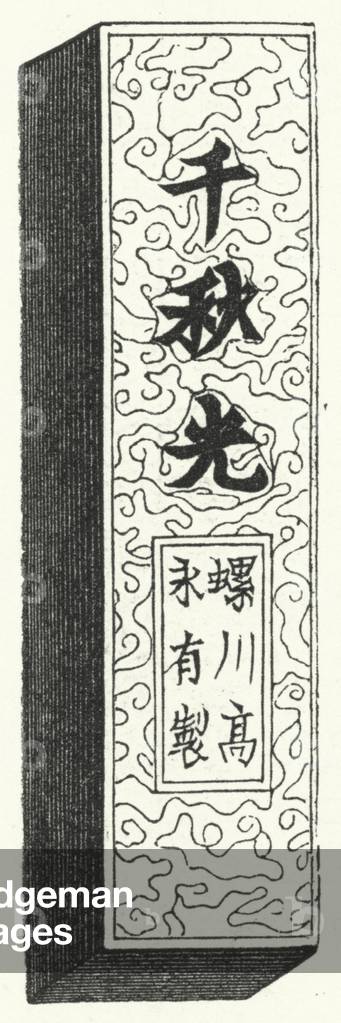 千秋光
螺川高
永有製
dgeman
ages